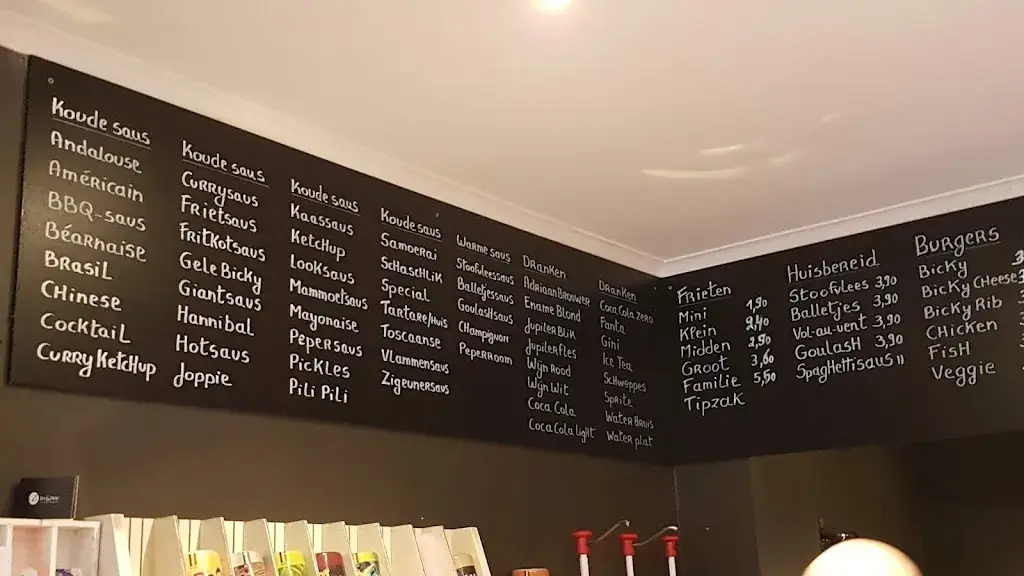 Koude saus
Andalouse
Américain
BBQ-saus
Béarnaise
Brasil
Chinese
Cocktail
Curry Ketchup
Koude saus
Currysaus
Frietsaus
Fritkotsaus
Gele Bicky
Giantsaus
Hannibal
Hotsaus
Joppie
Koude saus
Kaassaus
Ketchup
Looksaus
Mammoetsaus
Mayonaise
Pepersaus
Pickles
Pili Pili
Koude saus
Samoerai
Schaschlik
Special
Tartare/Huis
Toscaanse
Vlammensaus
Zigeunersaus
Warme saus
Stoofvleessaus
Balletjessaus
Goulashsaus
Champignon
Peperroom
Dranken
Adriaan Brouwer
Ename Blond
Jupiler Blik
Jupiler Fles
Wijn Rood
Wijn Wit
Coca Cola
Coca Cola light
Dranken
Coca Cola zero
Fanta
Gini
Ice Tea
Schweppes
Sprite
Water Bruis
Water plat
Frieten
Mini 1,90
Klein 2,40
Midden 2,90
Groot 3,60
Familie 5,50
Tipzak
Huisbereid
Stoofvlees 3,90
Balletjes 3,90
Vol-au-vent 3,90
Goulash 3,90
Spaghettisaus "
Burgers
Bicky
Bicky Cheese
Bicky Rib
Chicken
Fish
Veggie